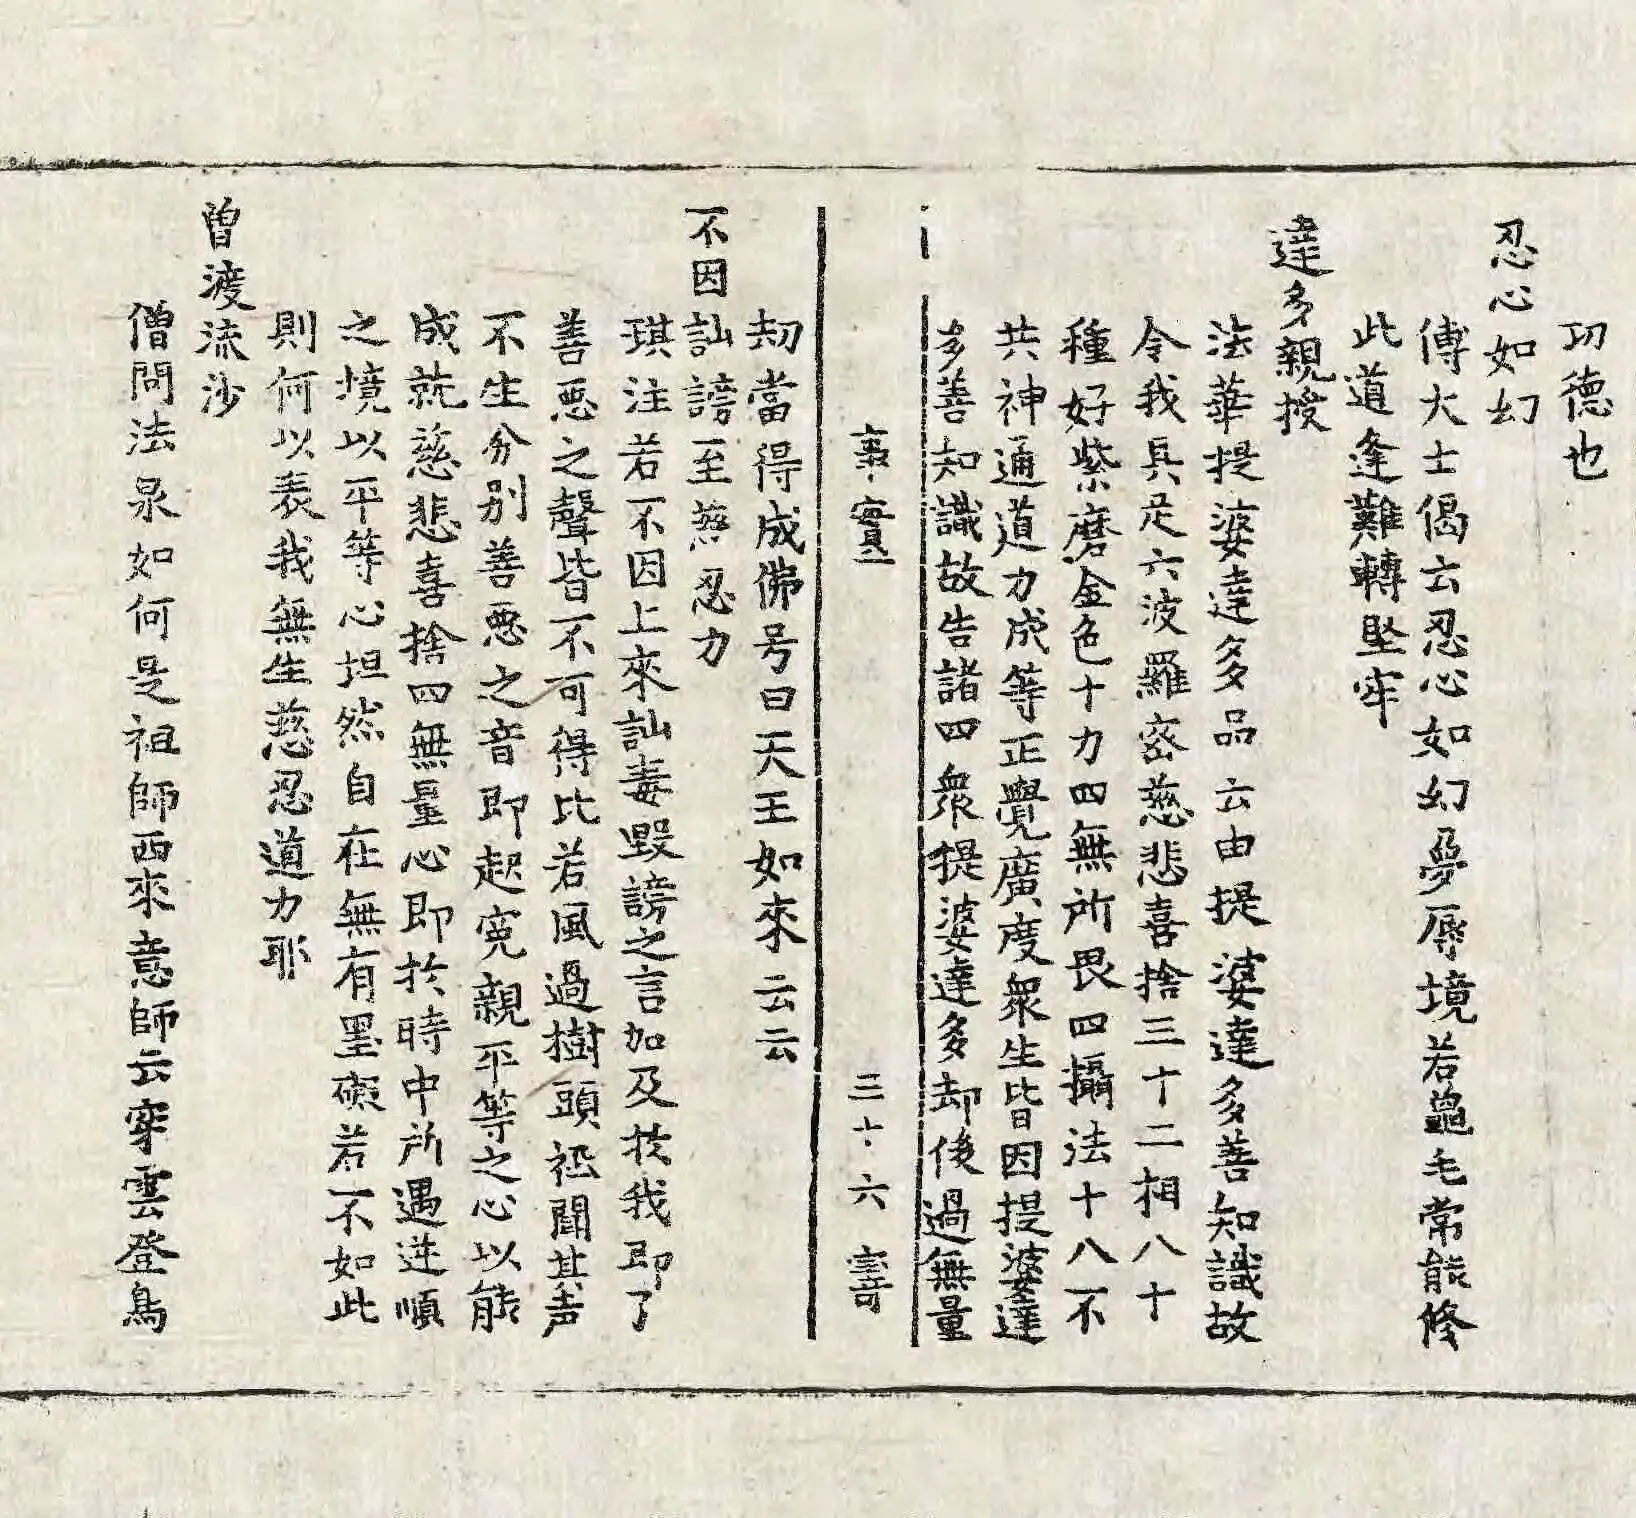 功德也
忍心如幻
傅大士偈云忍心如幻夢辱境若龜毛常能修
此道逢難轉堅牢
達多親授
法華提婆達多品云由提婆達多善知識故
令我具足六波羅蜜慈悲喜捨三十二相八十
種好紫磨金色十力四無所畏四攝法十八不
共神通道力成等正覺廣度衆生皆因提婆達
多善知識故告諸四衆提婆達多却後過無量
事實 三十六 壽
劫當得成佛号曰天王如來云云
不因訕謗至慈忍力
琪注若不因上來訕毒毀謗之言加及扵我即了
善惡之聲皆不可得比若風過樹頭祗聞其声
不生分別善惡之音即起寃親平等之心以能
成就慈悲喜捨四無量心即扵時中所遇逆順
之境以平等心坦然自在無有罣礙若不如此
則何以表我無生慈忍道力耶
曽渡流沙
僧問法泉如何是祖師西來意師云穿雲登鳥